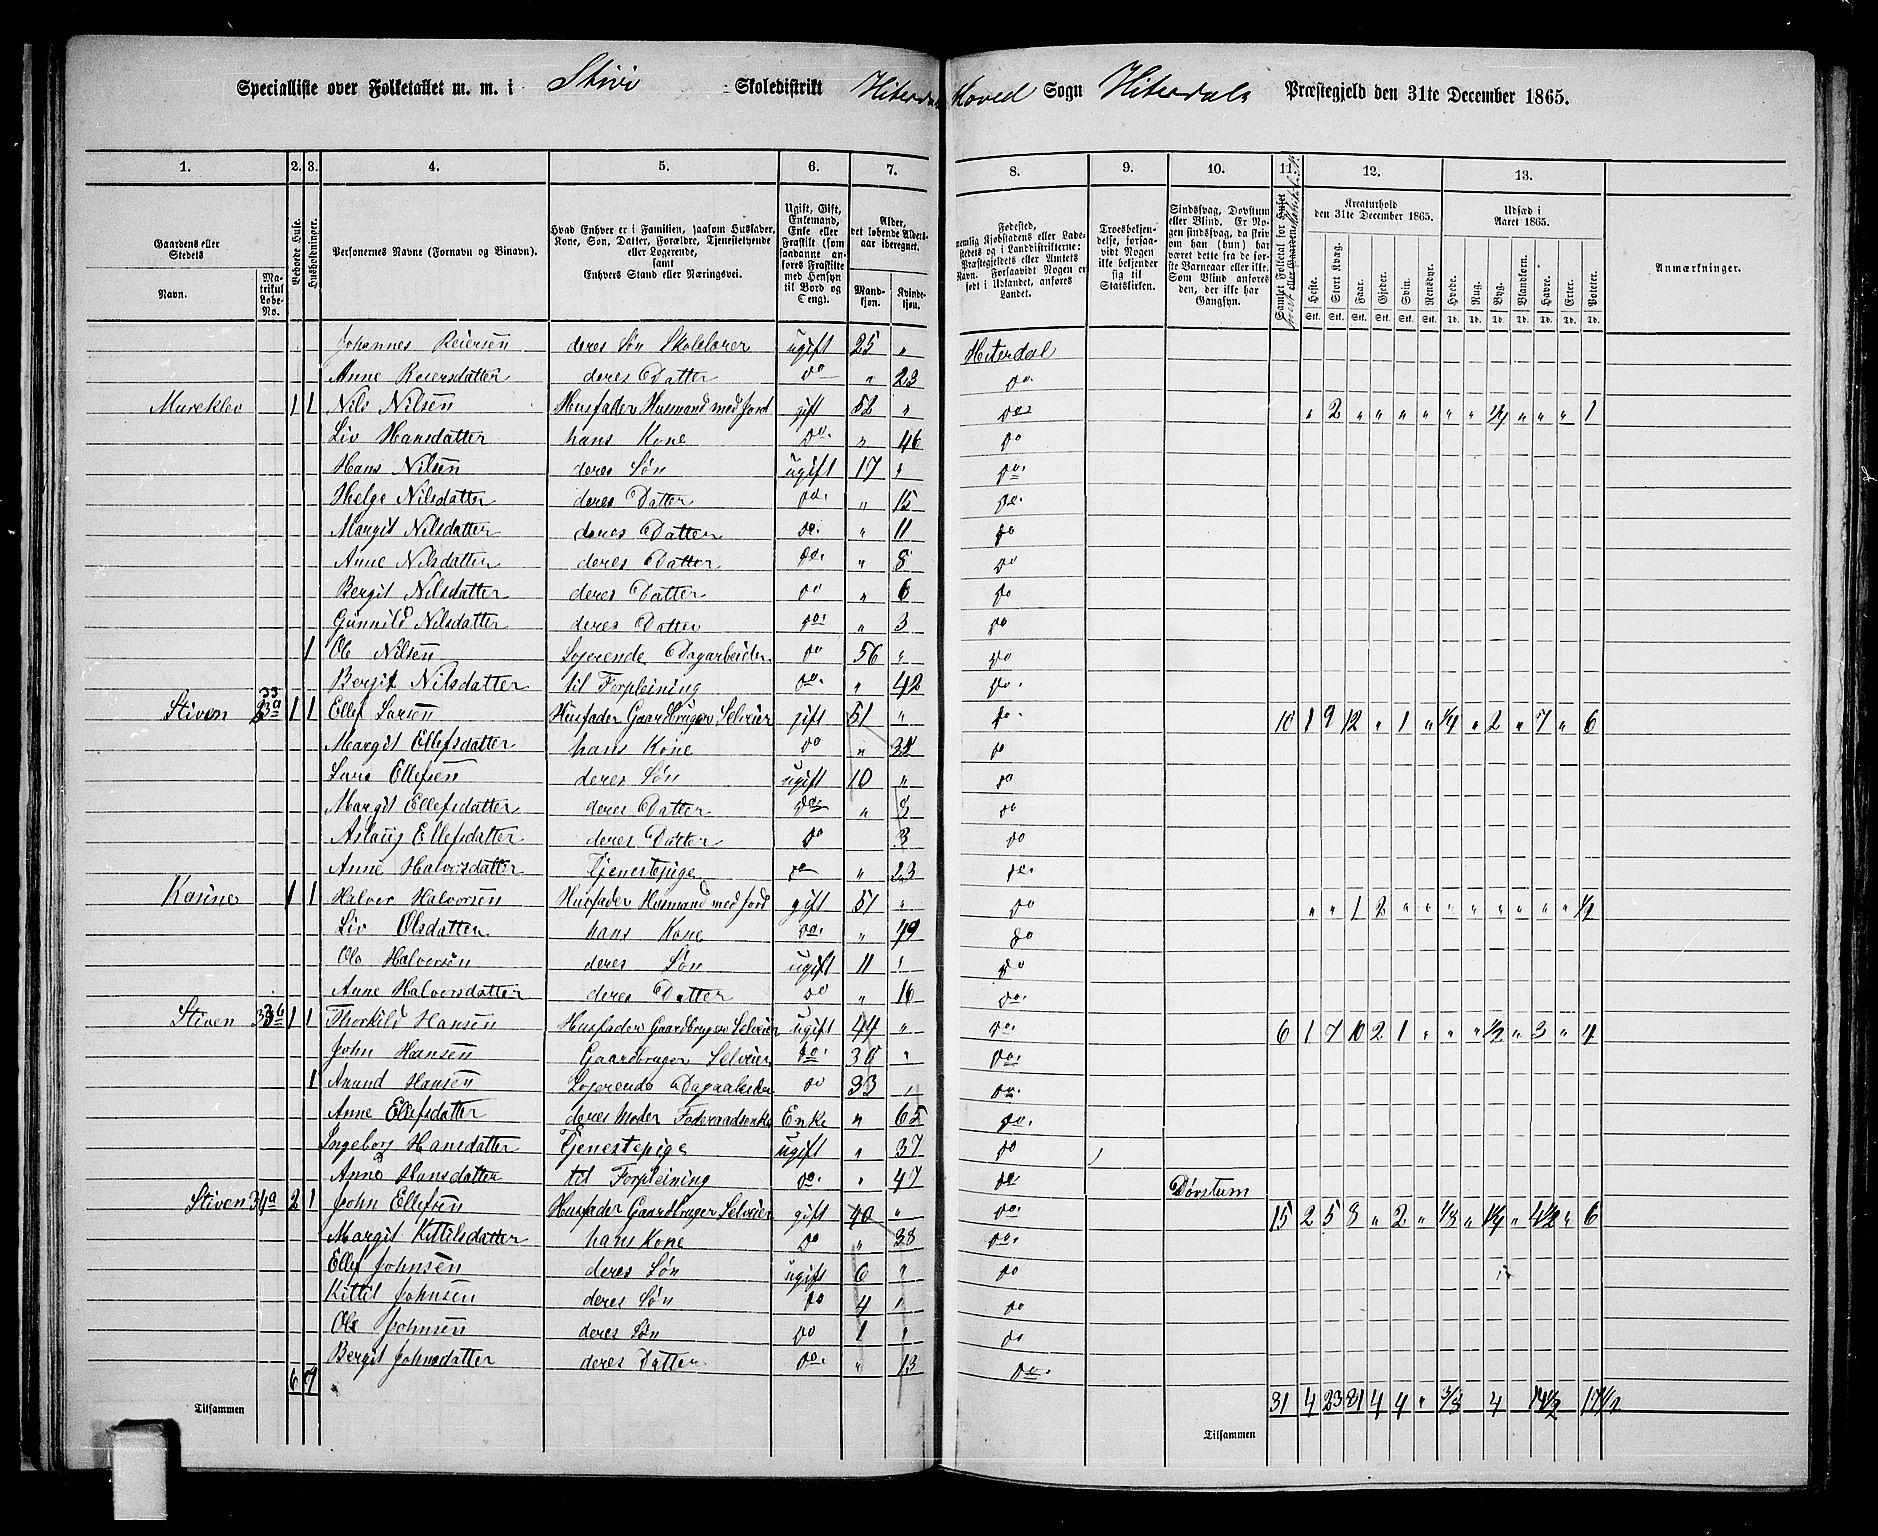 Specialliste over Folketallet m. m. i Stivi Skoledistrikt Hiterdals Hoved Sogn Hiterdals Præstegjeld den 31te December 1865.
1. 2. 3. 4. 5. 6. 7. 8. 9. 10. 11. 12. 13.
Gaardens eller Stedets Navn. Matrikul Løbe-No. Beboede Huse. Husholdninger. Personernes Navne (Fornavn og Binavn). Hvad Enhver er i Familien, saasom Husfader, Kone, Søn, Datter, Forældre, Tjenestetyende eller Logerende, samt Enhvers Stand eller Næringsvei. Ugift, Gift, Enkemand, Enke eller Fraskilt Alder, det løbende Alders-aar iberegnet. Mandkjøn. Kvindekjøn. Fødested, Troesbekjendelse, forsaavidt Nogen ikke bekjender sig til Statskirken. Sindssvag, Døvstum eller Blind. Kreaturhold den 31te December 1865. Heste. Stort Kvæg. Faar. Gjeder. Svin. Rensdyr. Udsæd i Aaret 1865. Hvede. Rug. Byg. Blandkorn. Havre. Erter. Poteter. Anmærkninger.
Johannes Reiersen deres Søn Skolelærer ugift 25 " Hiterdal
Anne Reiersdatter deres Datter do " 23 do
Mureklev 1 1 Nils Nilsen Husfader Husmand med Jord gift 52 " do " 2 " " " " " " 1/2 " " " 1
Liv Hansdatter hans Kone do " 46 do
Hans Nilsen deres Søn ugift 17 " do
Helge Nilsdatter deres Datter do " 15 do
Margit Nilsdatter deres Datter do " 11 do
Anne Nilsdatter deres Datter do " 8 do
Bergit Nilsdatter deres Datter do " 6 do
Gunnild Nilsdatter deres Datter do " 3 do
1 Ole Nilsen Logerende Dagarbeider do 56 " do
Bergit Nilsdatter til Forpleining do " 42 do
Stiven 33a 1 1 Ellef Larsen Husfader Gaardbruger Selveier gift 51 " do 10 1 9 12 " 1 " 1/4 " 2 " 7 " 6
Margit Ellefsdatter hans Kone do " do
Lars Ellefsen deres Søn ugift 10 " do
Margit Ellefsdatter deres Datter do " 8 do
Aslaug Ellefsdatter deres Datter do 3 do
Anne Halvorsdatter Tjenestepige do " 23 do
Kasine 1 1 Halvor Halvorsen Husfader Husmand med Jord gift 51 " do " " 1 2 " " " " " " " " 1/2
Liv Olsdatter hans Kone do " 49 do
Ole Halvorsen deres Søn ugift 11 " do
Anne Halvorsdatter deres Datter do " 16 do
Stiven 33b 1 1 Thorkild Hansen Husfader Gaardbruger Selveier ugift 44 " do 6 1 7 10 2 1 " " " 1/2 " 3 " 4
John Hansen Gaardbruger Selveier do " do
1 Anund Hansen Logerende Dagarbeider do 33 " do
Anne Ellefsdatter deres Moder Føderaadsenke Enke " 65 do
Ingeborg Hansdatter Tjenestepige ugift " 37 do
Anne Hansdatter til Forpleining do " 47 do Døvstum
Stiven 34a 2 1 John Ellefsen Husfader Gaardbruger Selveier gift 40 " do 15 2 5 8 " 2 " 1/8 " 1 1/2 " 4 1/2 " 6
Margit Kittilsdatter hans Kone do " 38 do
Ellef Johnsen deres Søn ugift 6 " do
Kittil Johnsen deres Søn do 4 " do
Ole Johnsen deres Søn do 1 " do
Bergit Johnsdatter deres Datter do " 13 do
6 7
Tilsammen Tilsammen 31 4 23 31 4 4 " 3/8 4 14 1/2 17 1/2